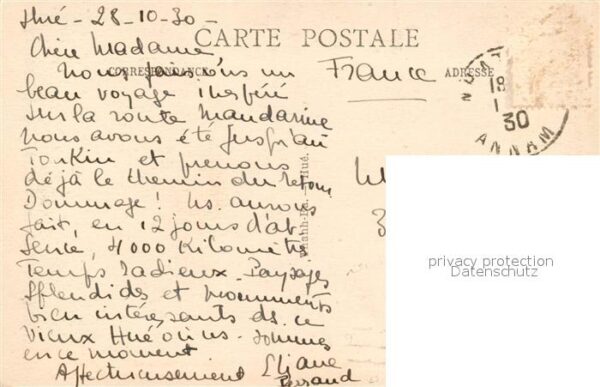 Hué - 28-10-30 -
CARTE POSTALE
Chère Madame
CORRESPONDANCE
ADRESSE
France
Nous faisons un
beau voyage inespéré
sur la route mandarine
nous avons été jusqu'au
Tonkin et prenons
déjà le chemin du retour
Dommage ! ns. aurons
fait, en 12 jours d'ab
sence, 4000 Kilomètres
Temps radieux - Paysages
splendides et monuments
bien intéressants ds. ce
vieux Hué où ns. sommes
en ce moment
Affectueusement Eliane
Hué.
30
ANNAM
privacy protection
Datenschutz